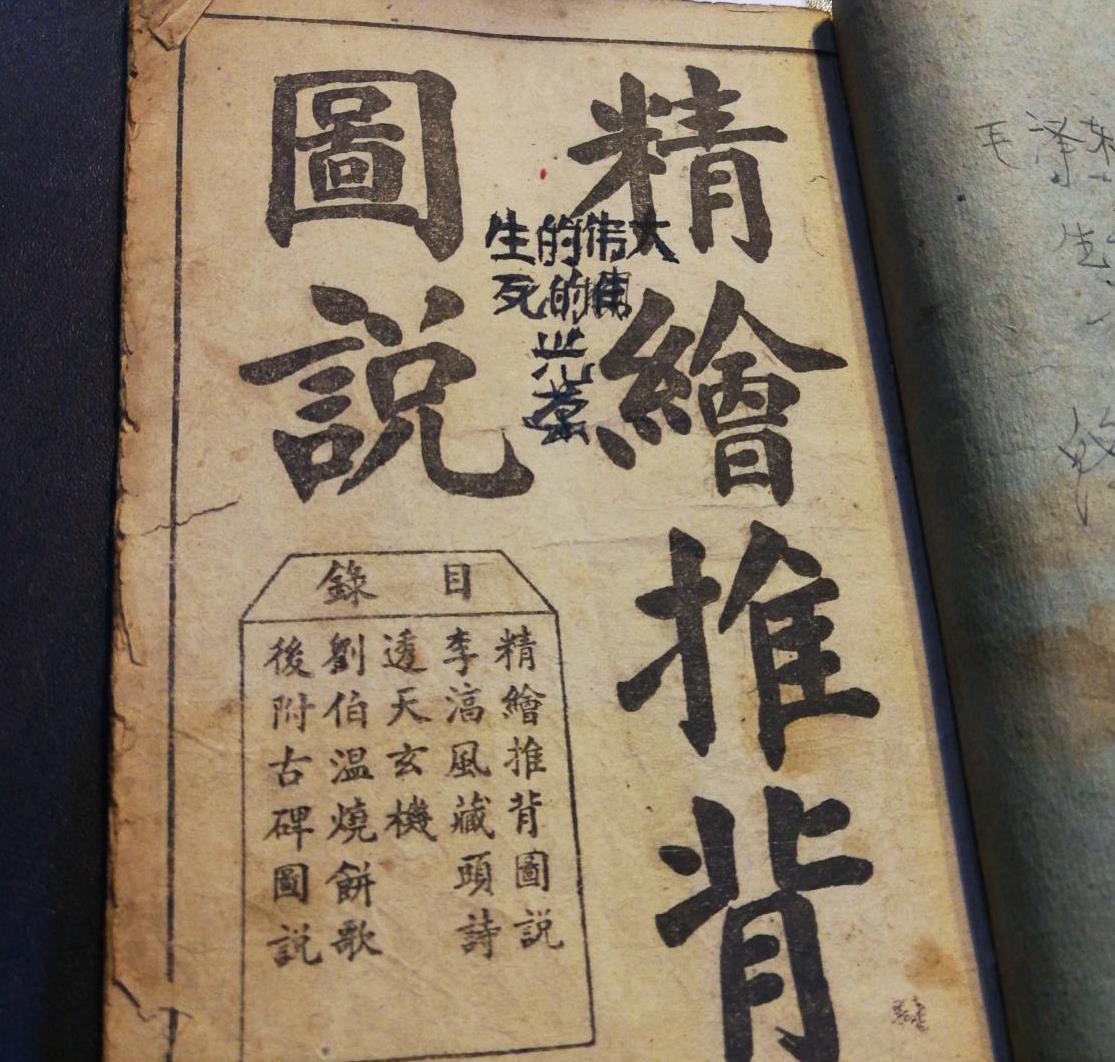 精繪推背
圖說
生的伟大
死的
光榮
目錄
精繪推背圖説
李湻風藏頭詩
透天玄機
劉伯温燒餅歌
後附古碑圖説
毛泽东
生